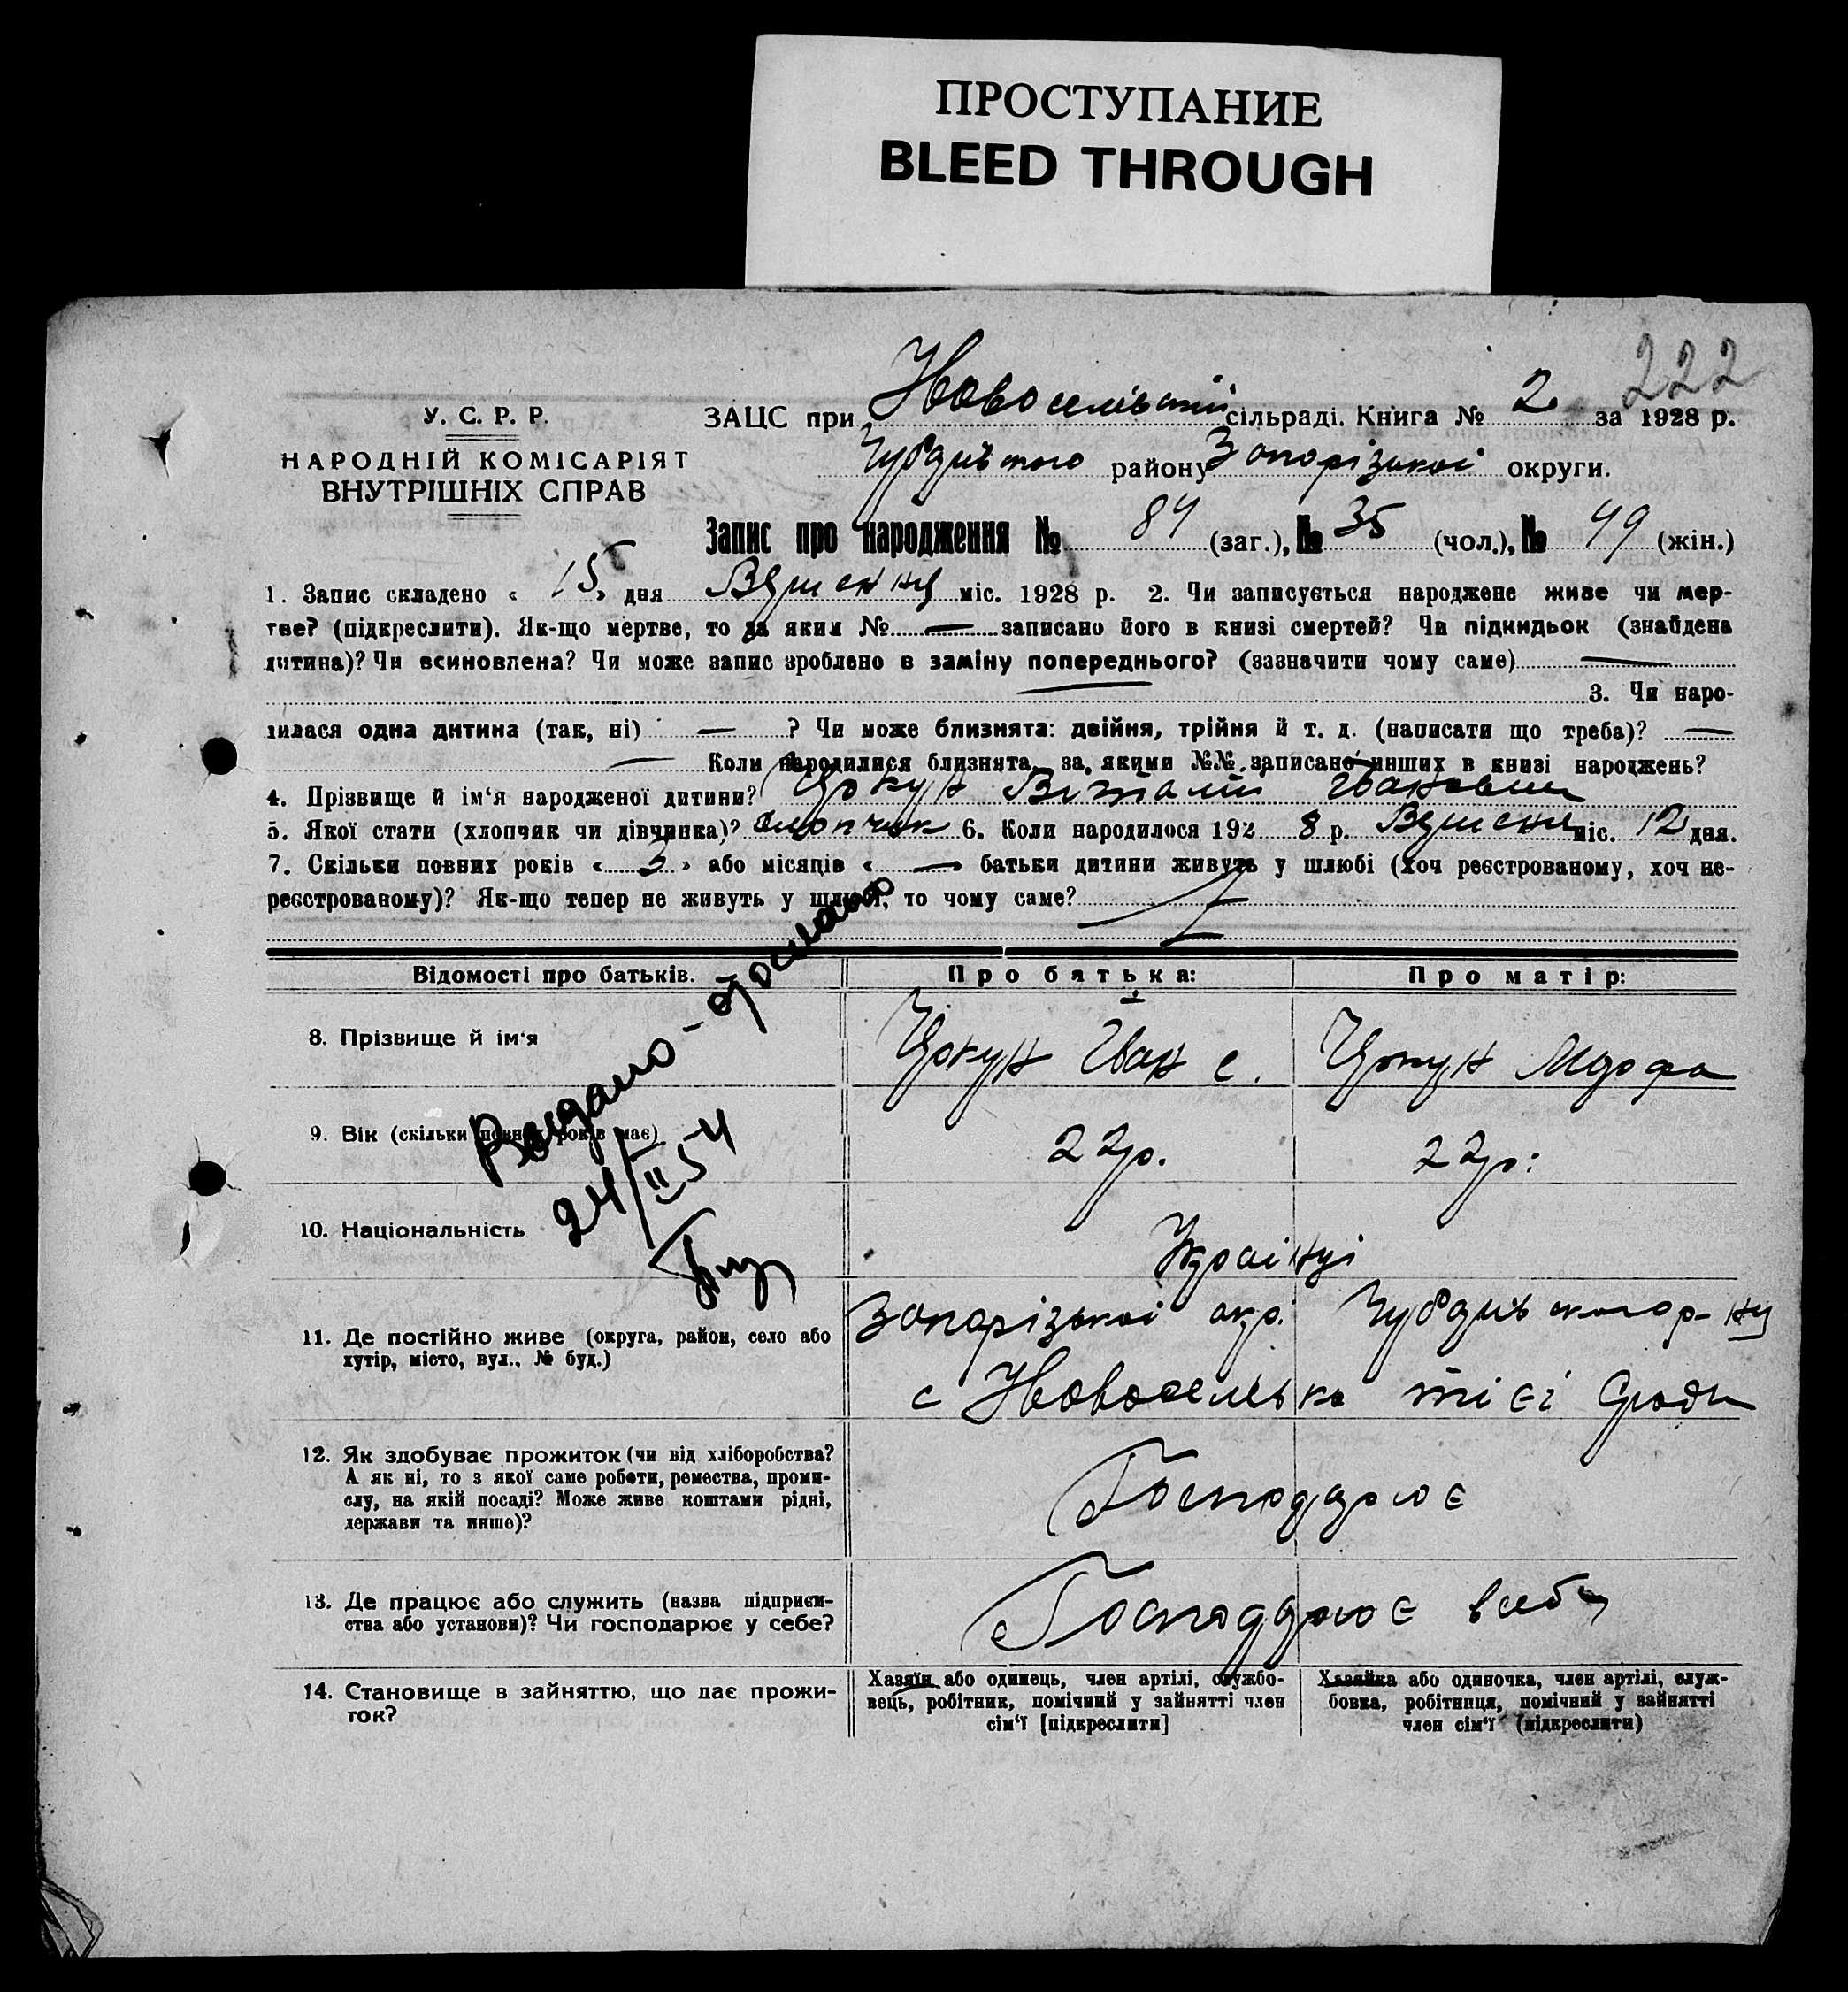 ПРОСТУПАНИЕ
BLEED THROUGH
222
У. С. Р. Р.
НАРОДНІЙ КОМІСАРІЯТ
ВНУТРІШНІХ СПРАВ
ЗАЦС при Новоселівській сільраді. Книга № 2 за 1928 р.
району Запорізької округи.
Запис про народження № 84 (заг.), № 35 (чол.), № 49 (жін.)
1. Запис складено « 15 » дня Вересня міс. 1928 р. 2. Чи записується народжене живе чи мер-
тве? (підкреслити). Як-що мертве, то за яким № — записано його в книзі смертей? Чи підкидьок (знайдена
дитина)? Чи всиновлена? Чи може запис зроблено в заміну попереднього? (зазначити чому саме) —
— 3. Чи наро-
дилася одна дитина (так, ні) — ? Чи може близнята: двійня, трійня й т. д. (написати що треба)? —
— Коли народилися близнята, за якими №№ записано инших в книзі народжень? —
4. Прізвище й ім'я народженої дитини? Цокун Віталій Іванович
5. Якої стати (хлопчик чи дівчинка)? хлопчик 6. Коли народилося 192 8 р. Вересня міс. 12 дня.
7. Скільки повних років « 3 » або місяців « — » батьки дитини живуть у шлюбі (хоч реєстрованому, хоч не-
реєстрованому)? Як-що тепер не живуть у шлюбі, то чому саме?
Відомості про батьків. Про батька: Про матір:
8. Прізвище й ім'я Цокун Іван Є. Цокун
9. Вік (скільки повних років має) 22 р. 22 р.
24/II 54
10. Національність Українці
11. Де постійно живе (округа, район, село або
хутір, місто, вул., № буд.)
Запорізької окр.
с Новоселівка тієї Сради
12. Як здобуває прожиток (чи від хліборобства?
А як ні, то з якої саме роботи, ремества, проми-
слу, на якій посаді? Може живе коштами рідні,
держави та инше)?
Господарює
13. Де працює або служить (назва підприєм-
ства або установи)? Чи господарює у себе?
Господарює в себе
14. Становище в зайняттю, що дає прожи-
ток?
Хазяїн або одинець, член артілі, службо-
вець, робітник, помічний у зайнятті член
сім'ї [підкреслити]
Хазяйка або одиночка, член артілі, служ-
бовка, робітниця, помічний у зайнятті
член сім'ї (підкреслити)